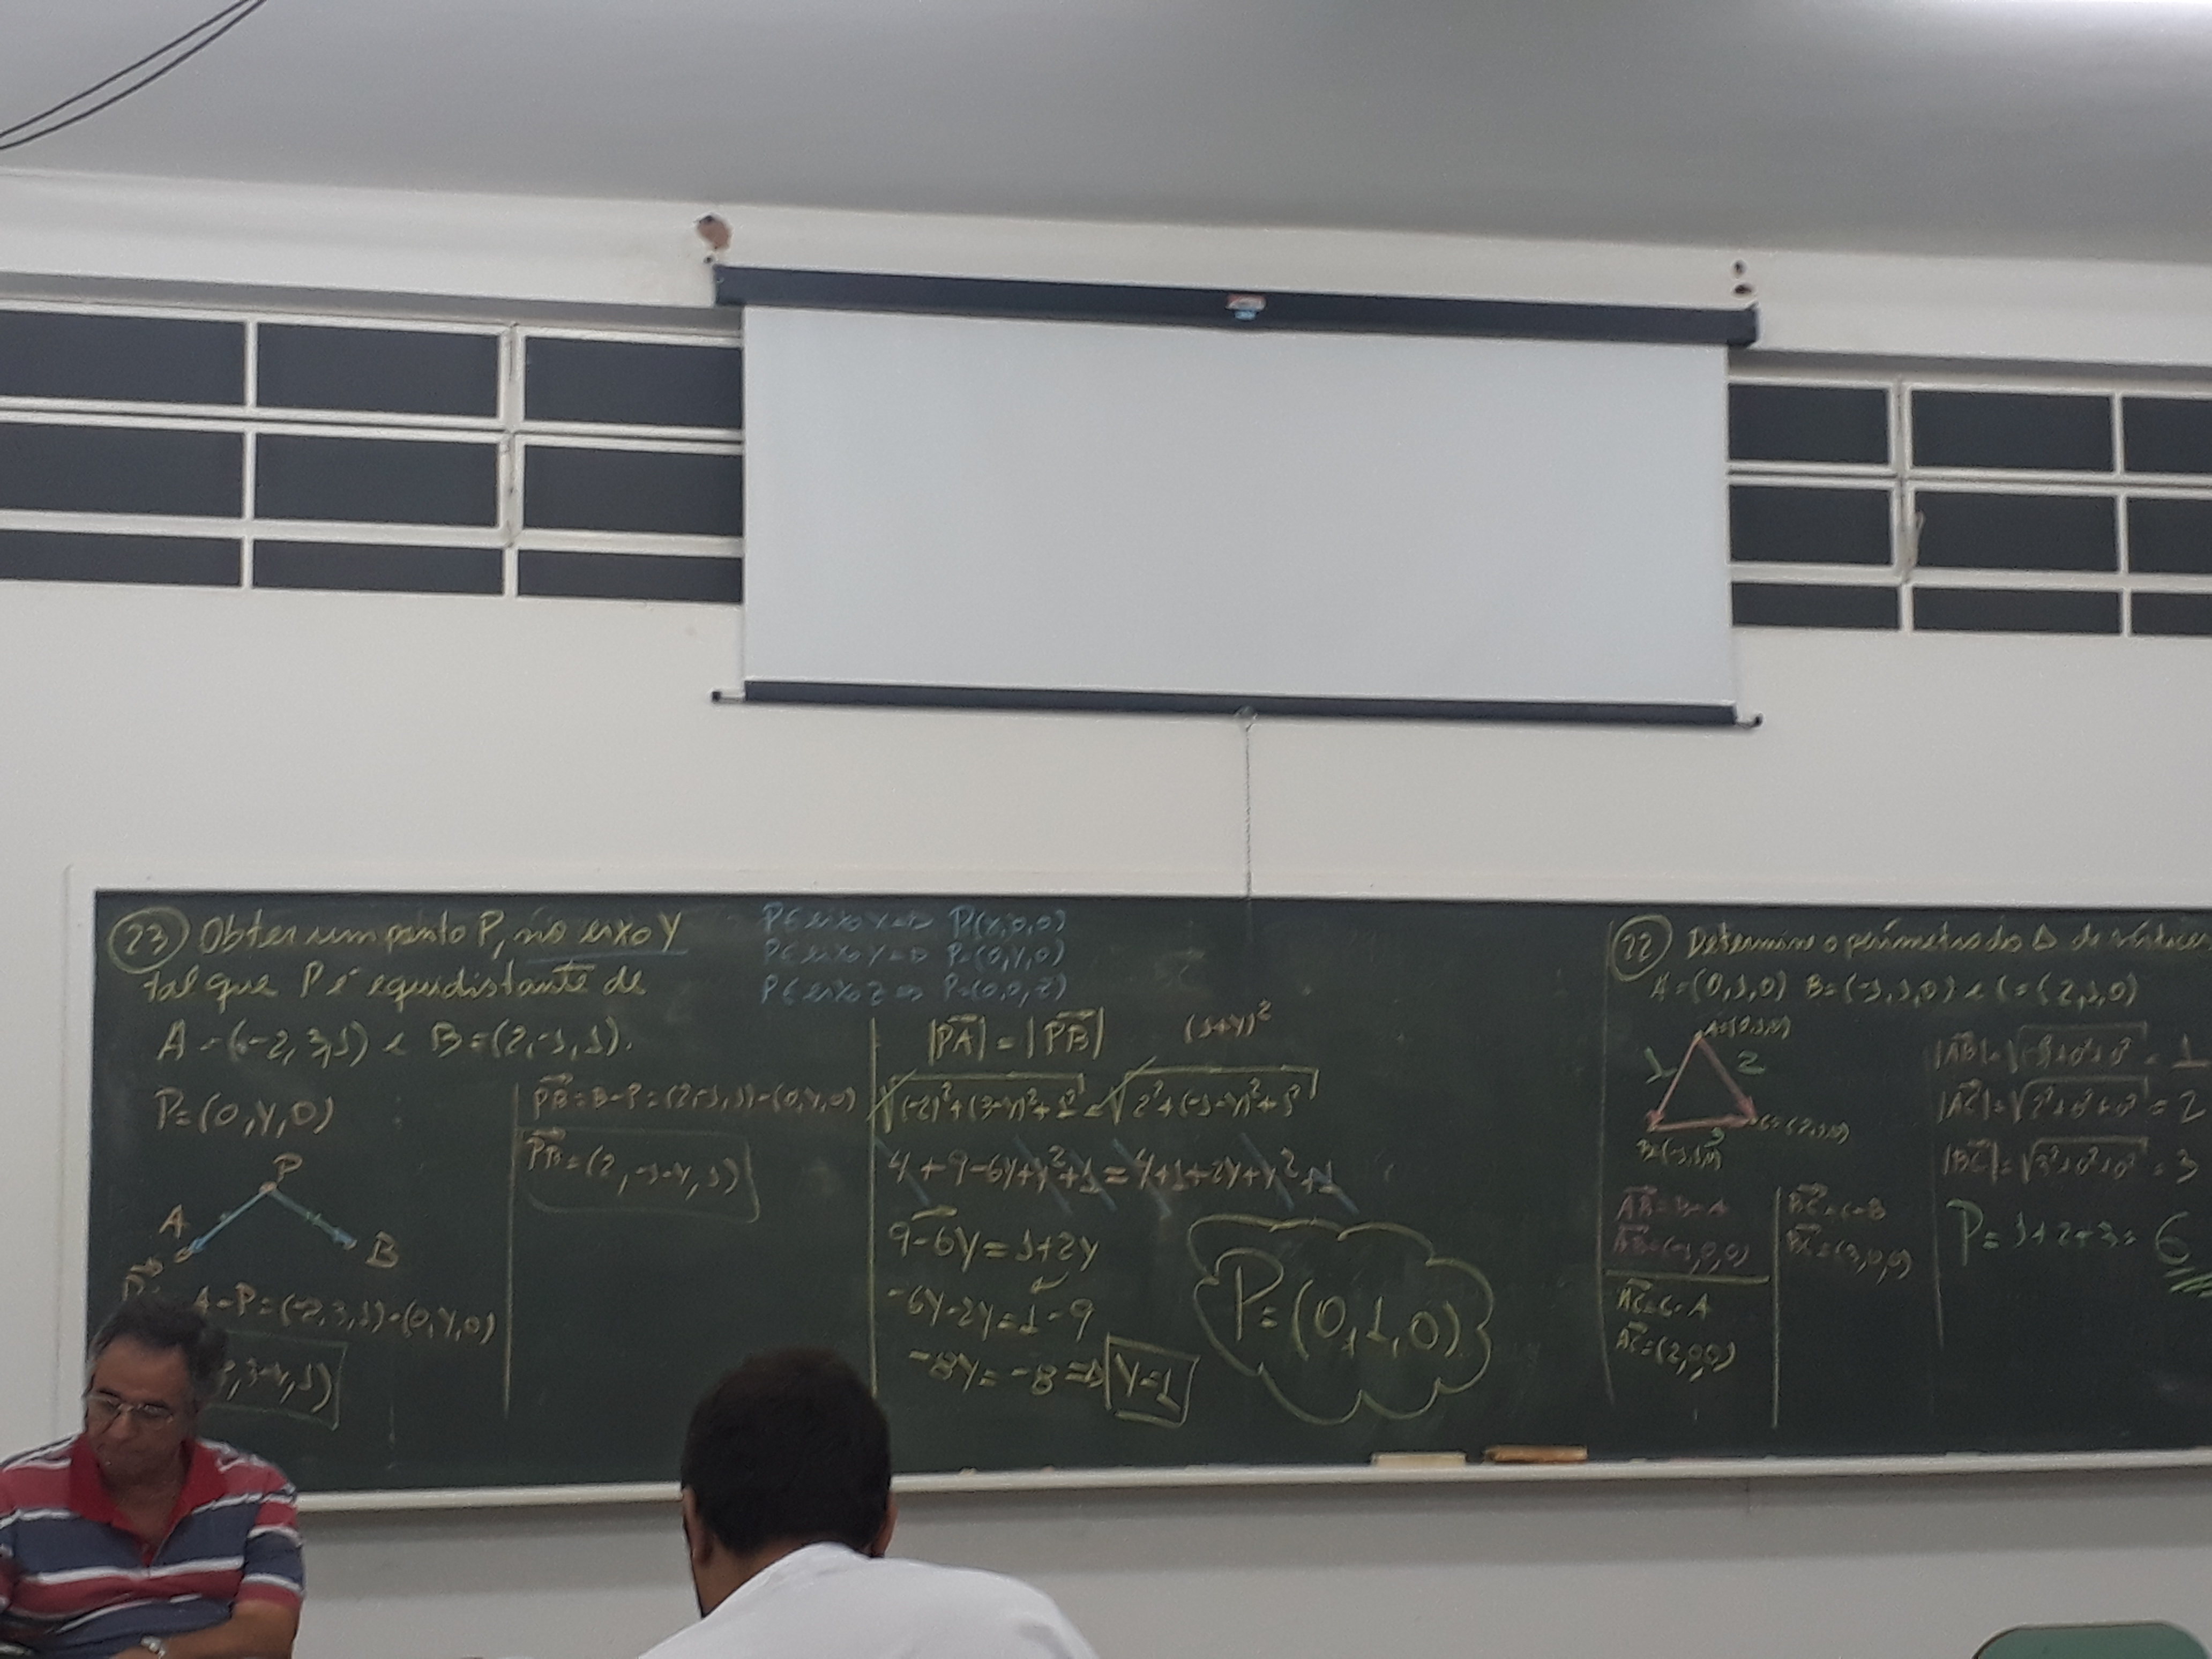 23 Obter um ponto P, no eixo Y
tal que P é equidistante de
A = (-2, 3, 1) e B = (2, -1, 1).
P = (0, Y, 0)
P
A
B
A - P = (-2, 3, 1) - (0, Y, 0)
, 3-Y, 1)
P ∈ eixo X => P(X, 0, 0)
P ∈ eixo Y => P = (0, Y, 0)
P ∈ eixo Z => P = (0, 0, Z)
PB = B - P = (2, -1, 1) - (0, Y, 0)
PB = (2, -1-Y, 1)
|PA| = |PB| (1+Y)²
√(-2)² + (3-Y)² + 1² = √2² + (-1-Y)² + 1²
4 + 9 - 6Y + Y² + 1 = 4 + 1 + 2Y + Y² + 1
9 - 6Y = 1 + 2Y
-6Y - 2Y = 1 - 9
-8Y = -8 => Y = 1
P = (0, 1, 0)
22 Determine o perímetro do Δ de vértices
A = (0, 1, 0) B = (-1, 1, 0) e C = (2, 1, 0)
A = (0, 1, 0)
1 2
B = (-1, 1, 0) 3 C = (2, 1, 0)
AB = B - A
AB = (-1, 0, 0)
AC = C - A
AC = (2, 0, 0)
BC = C - B
BC = (3, 0, 0)
|AB| = = 1
|AC| = √2² + 0² + 0² = 2
|BC| = √3² + 0² + 0² = 3
P = 1 + 2 + 3 = 6